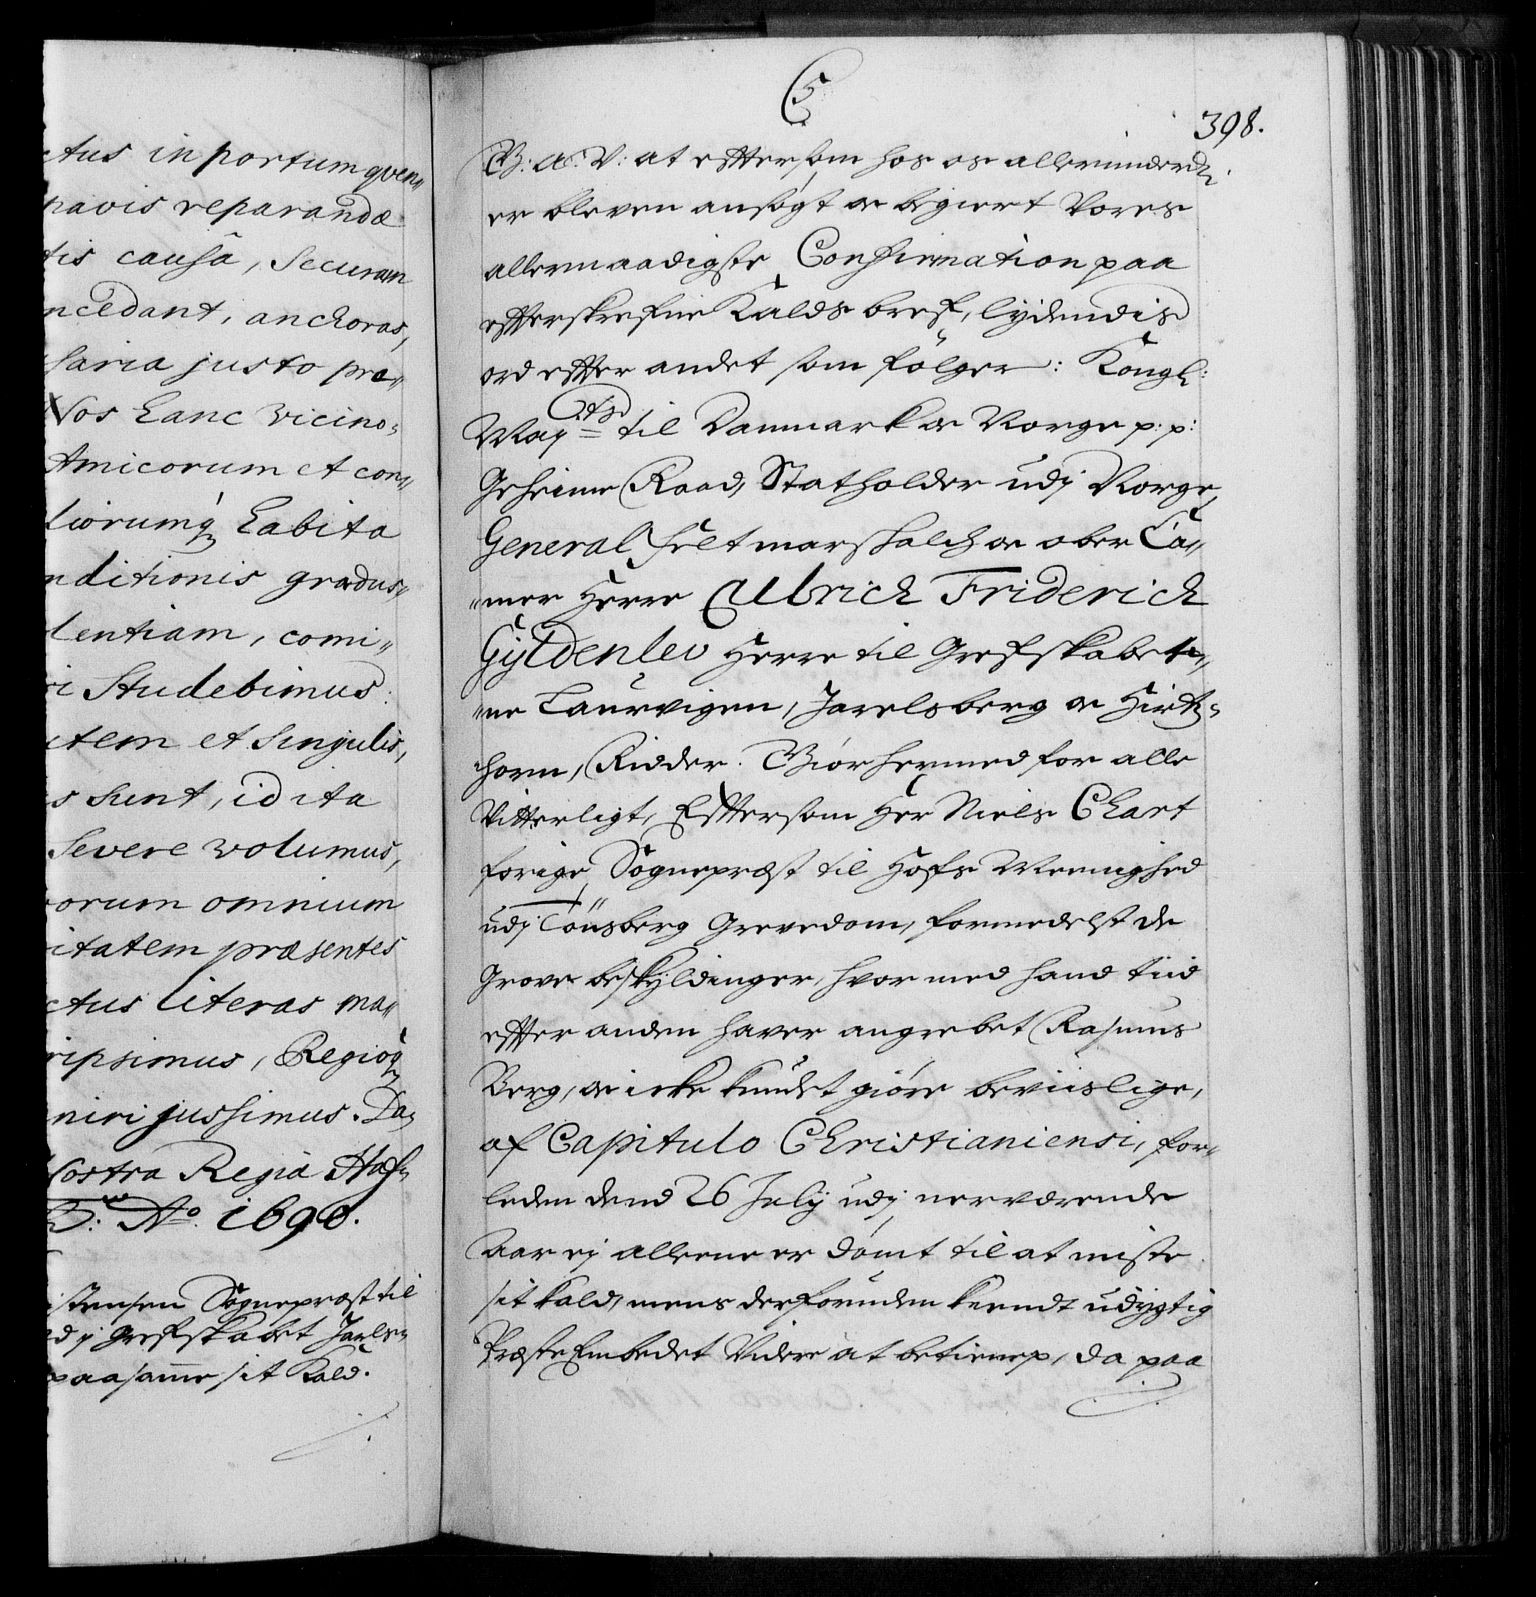 ctus in portum qven„
navis reparandæ
tis causâ, Securam
ncedant, anchoras,
saria justo pre„
Nos hanc vicino„
Amicorum et con„
liorumq; habita
nditionis gradus„
lentiam, comi„
ri Studebimus
item et Singulis,
s sunt, id ita
Severe volumus,
orum omnium
itatem præsentes
ctus literas ma„
ripsimus, Regioq;
niri jussimus. Da„
Nostra Regia Haf„
Aº. 1690.
istensen Sognepræst til
udj Grefskabet Jarls„
paa samme sit Kald.
C5
398.
G: A: V: at eftersom hos os allerunderd:
er bleven ansögt oc begiert Vores
allernaadigste Confirmation paa
efterskrefne Kalds bref, lydendis
ord efter andet som fölger: Kongl:
May:ts til Danmark oc Norge p: p:
Geheime Raad, Statholder udj Norge,
General Feltmarskalch oc ober Ca„
„mer Herre Ulrich Friderich
Gyldenlev Herre til Grefskaber„
„ne Laurvigen, Jarelsberg oc Hirtz„
horn, Ridder. Giör hermed for alle
Vitterligt, Eftersom Her Niels Chart
forige Sognepræst til Hofs Menighed
udj Tönsberg Grevedom, formedelst de
Grove beskyldinger, hvor med hand tiid
efter anden haver angrebet Rasmus
Berg, oc icke kundet giöre beviislige,
af Capitulo Christianiensi, for„
leden dend 26 Julij udj nerværende
Aar ej alleene er dömt til at miste
sit kald, mens derforuden kiendt udygtig
Præste Embedet Videre at betiene, da paa